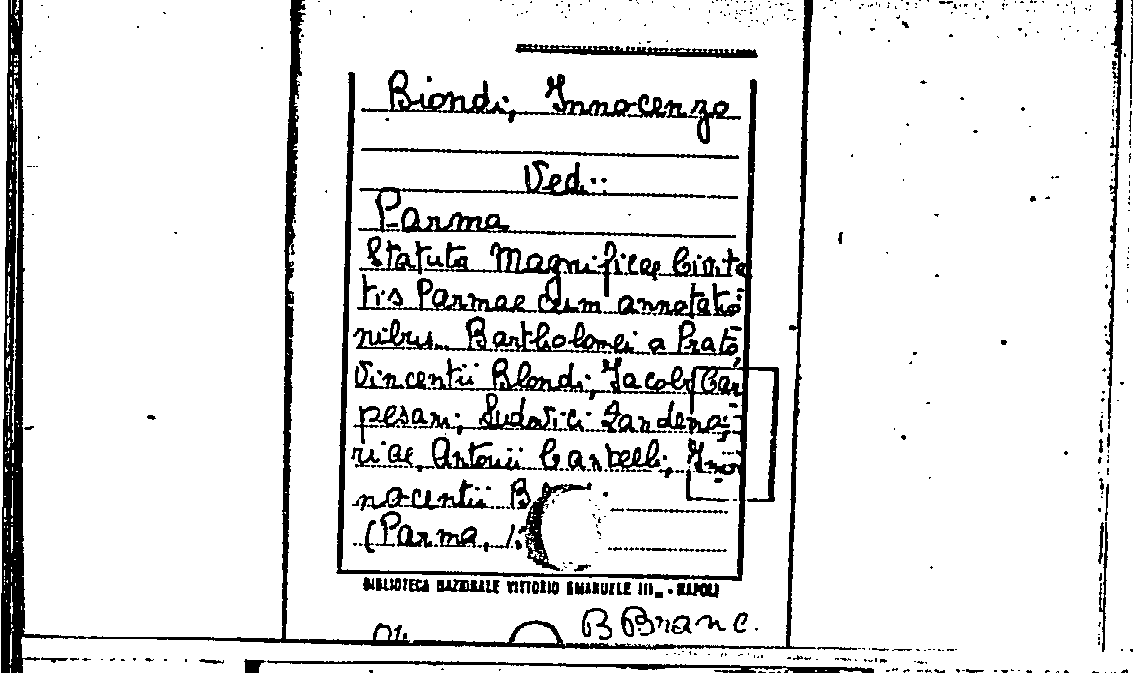 Biondi, Innocenzo
Vedi:
Parma
Statuta Magnificae Civita
tis Parmae cum annotatio
nibus Bartholomei a Prato,
Vincentii Blondi, Jacobi Car
pesani, Ludovici Zandema
riae, Antonii Carbelli, Inno
nocentii B
(Parma, 1
BIBLIOTECA NAZIONALE VITTORIO EMANUELE III - NAPOLI
B Branc.